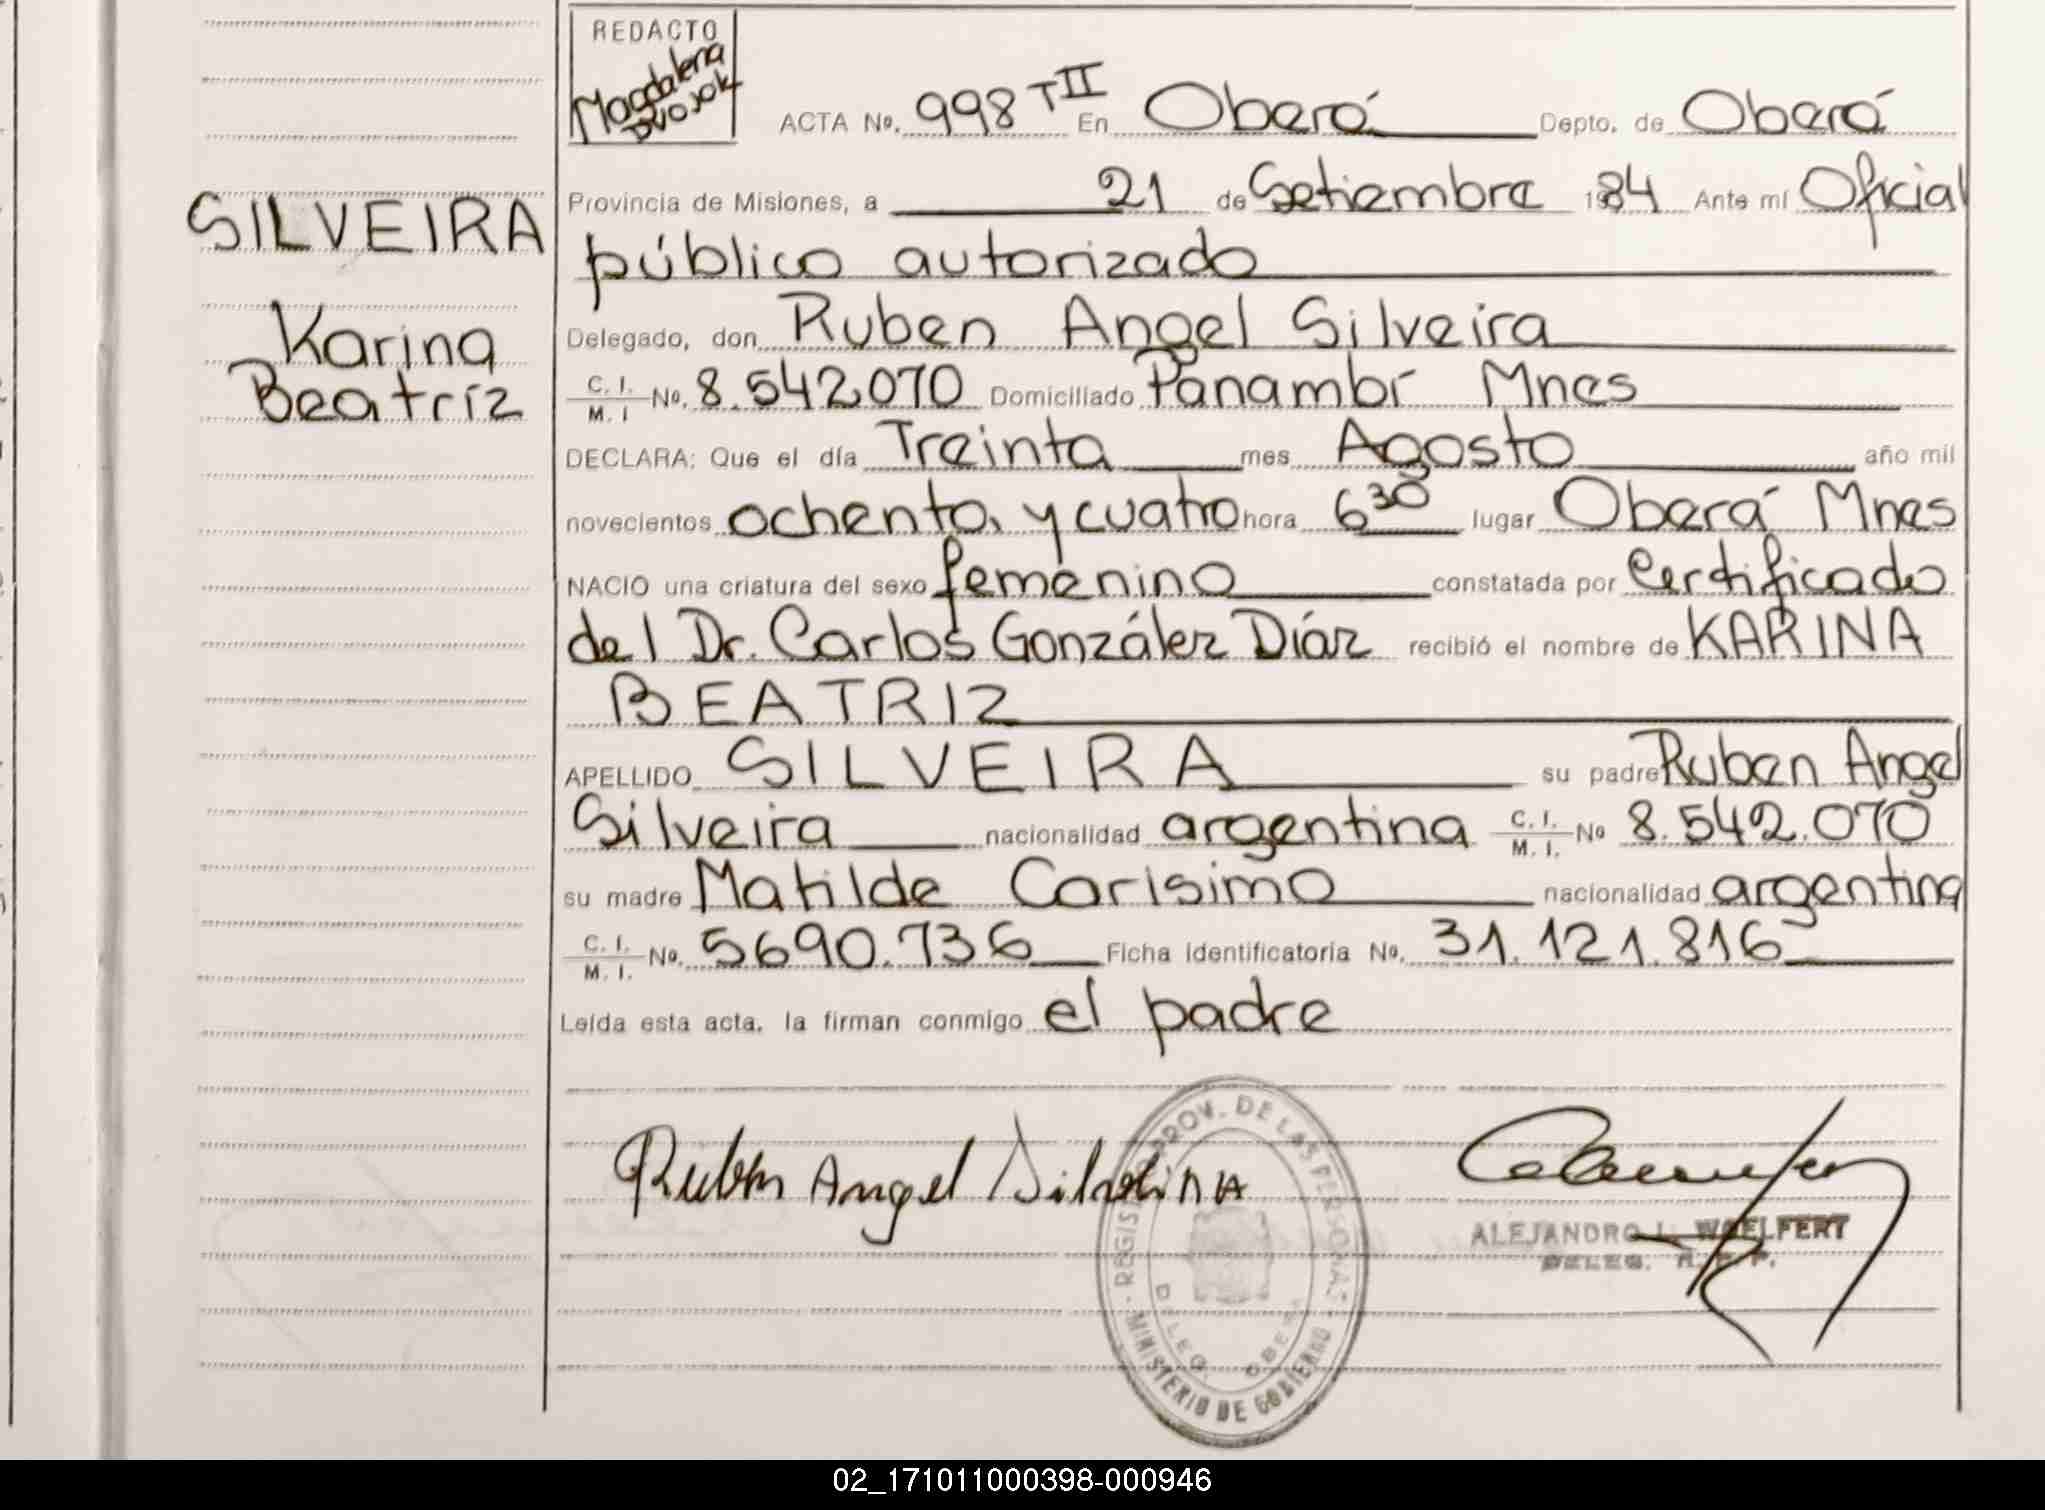 REDACTO
Magdalena
DVOJOK
ACTA No. 998 TII En Oberá Depto. de Oberá
SILVEIRA
Karina
Beatríz
Provincia de Misiones, a 21 de Setiembre 1984 Ante mí Oficial
público autorizado
Delegado, don Ruben Angel Silveira
C. I. M. I No. 8.542.070 Domiciliado Panambí Mnes
DECLARA: Que el día Treinta mes Agosto año mil
novecientos ochenta y cuatro hora 6 30 lugar Oberá Mnes
NACIO una criatura del sexo femenino constatada por Certificado
del Dr. Carlos González Díaz recibió el nombre de KARINA
BEATRIZ
APELLIDO SILVEIRA su padre Ruben Angel
Silveira nacionalidad argentina C. I. M. I. No 8.542.070
su madre Matilde Carisimo nacionalidad argentina
C. I. M. I. No. 5690.736 Ficha identificatoria No. 31.121.816
Leída esta acta, la firman conmigo el padre
Ruben Angel Silveira
REGISTRO PROV. DE LAS PERSONAS
DELEG. OBERA
MINISTERIO DE GOBIERNO
ALEJANDRO L. WOELFERT
DELEG. R. P. P.
02_171011000398-000946